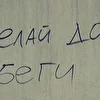 ЕЛАЙ ДО
БЕГИ